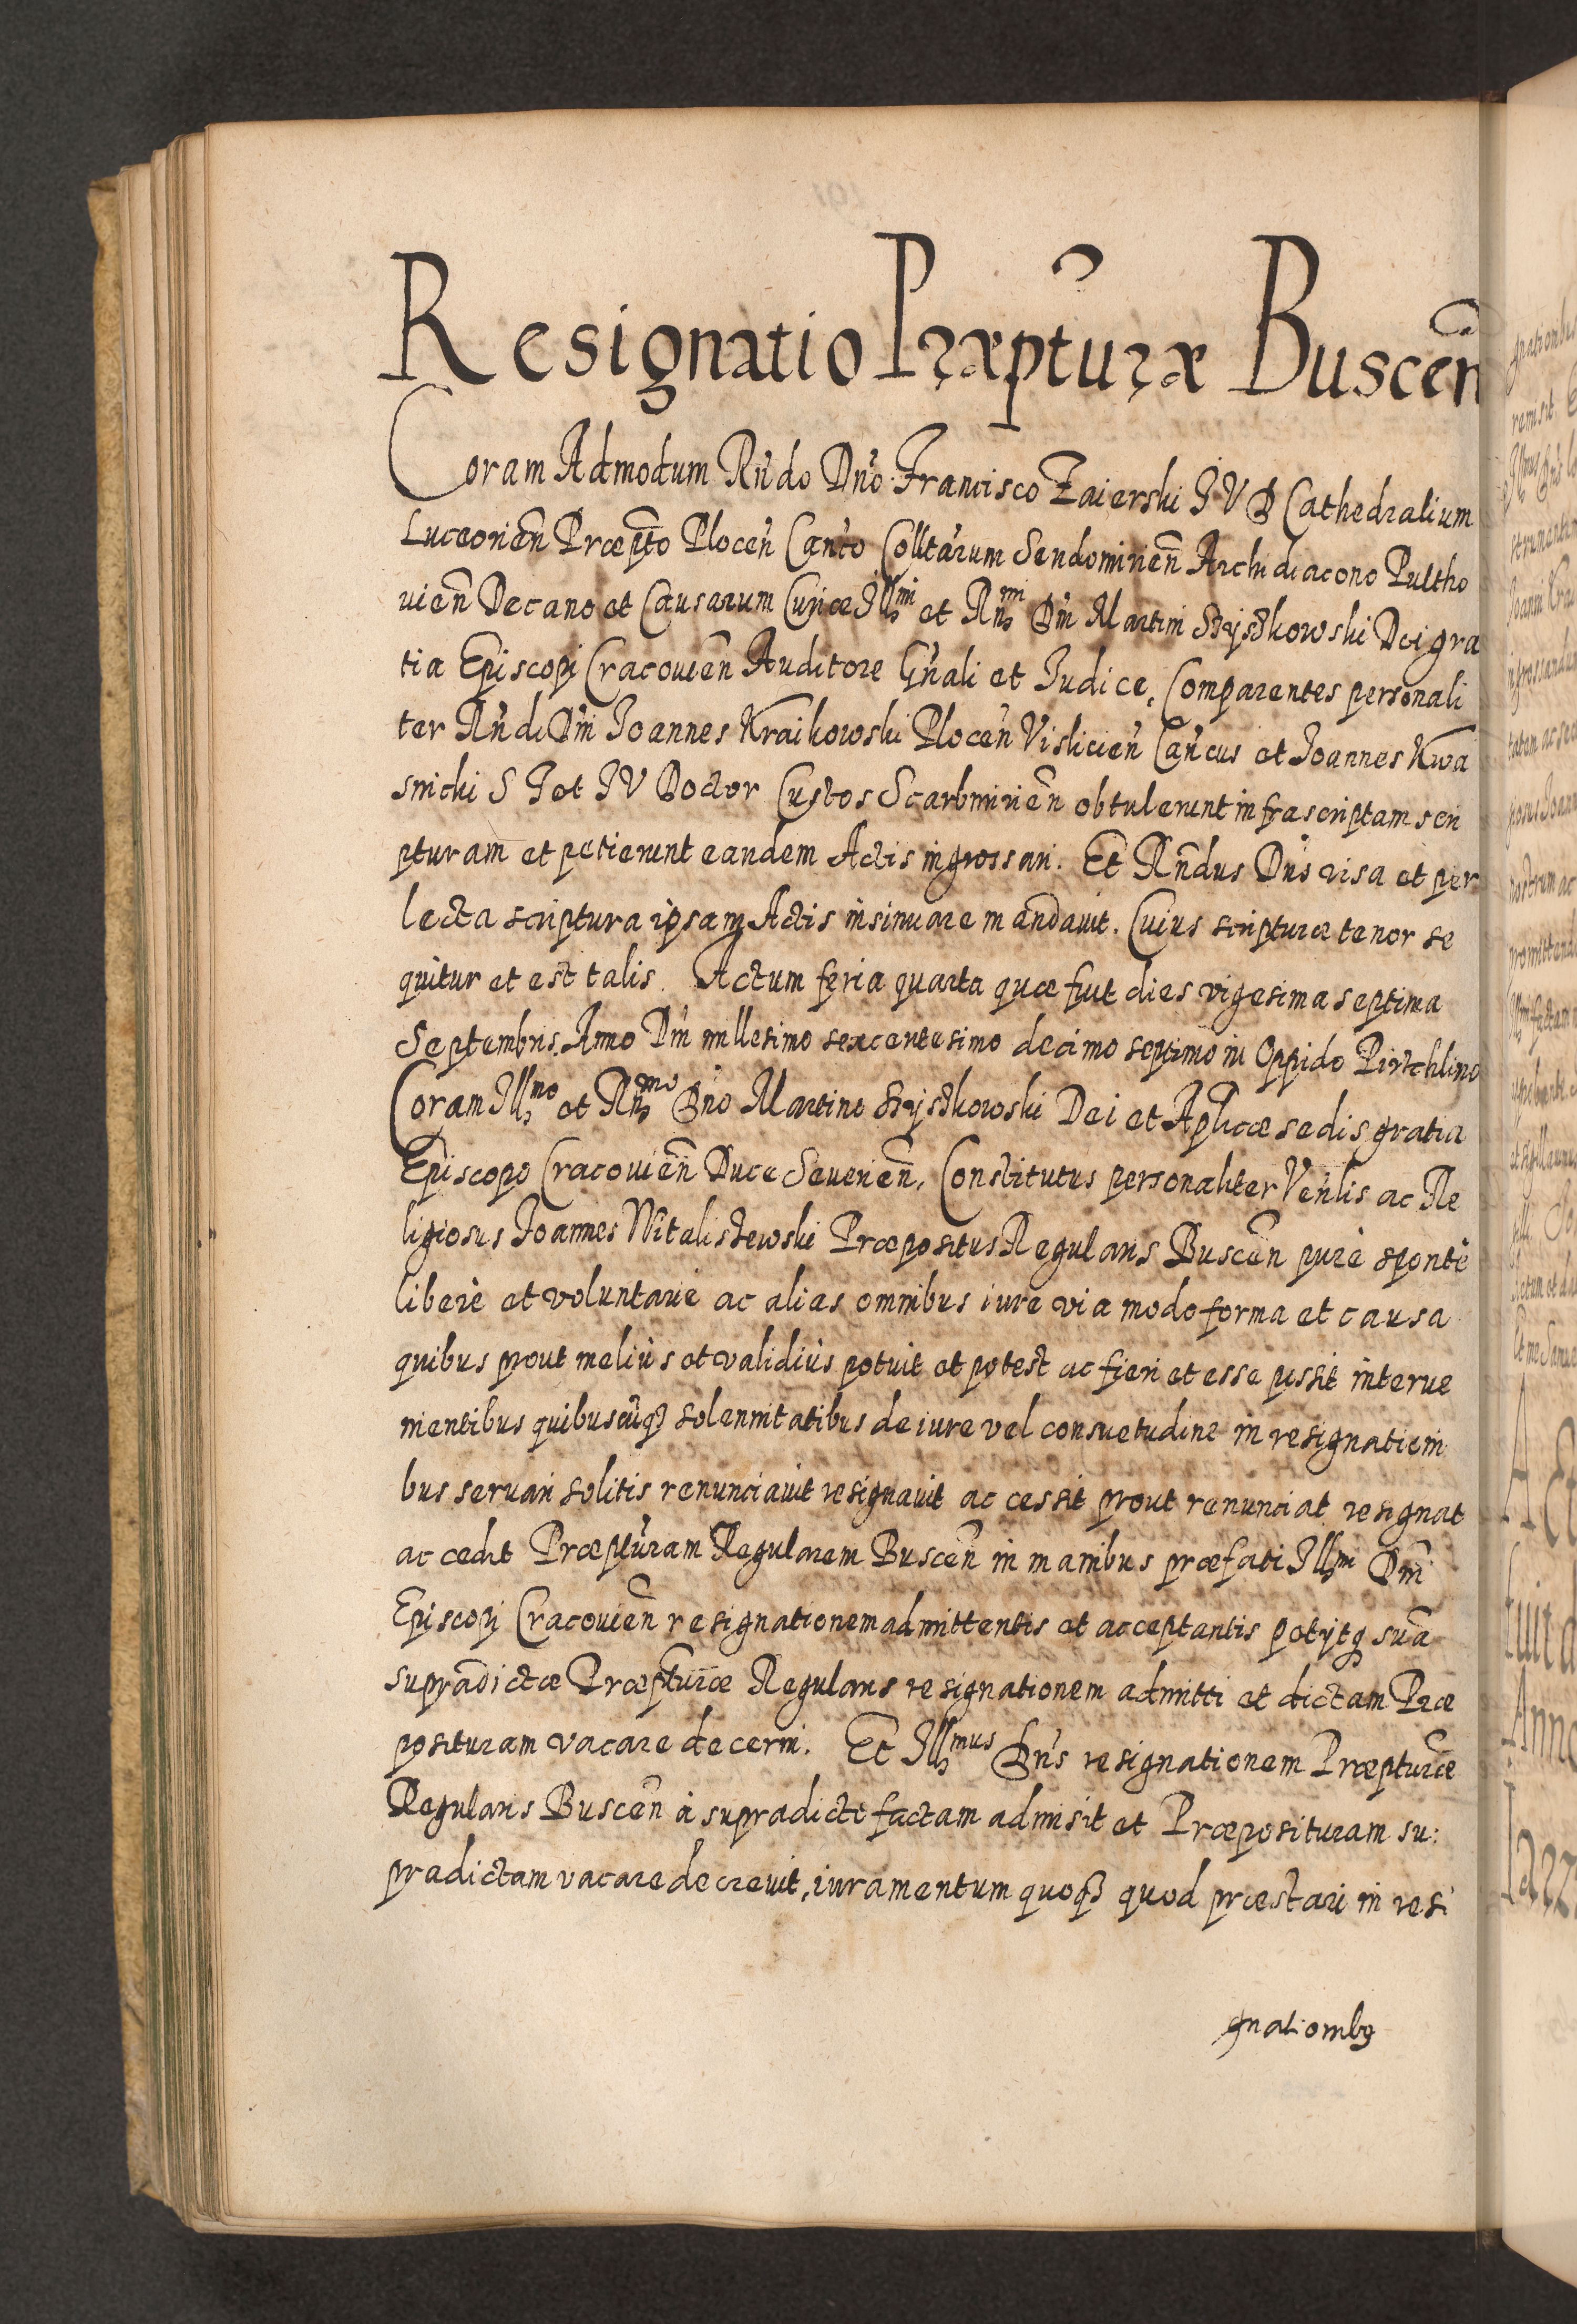 Resignatio Præpturæ Buscen̄
Coram Admodum Rn̄do Dn̄o Francisco Zaierski J V D Cathedralium
Luceorien̄ Præpto Plocen̄ Can̄co Colltarum Sendomirien̄ Archidiacono Pultho
uien̄ Decano et Causarum Curiæ Illmi et Rn̄mi Dn̄i Martini Szyszkowski Dei gra
tia Episcopi Cracouien̄ Auditore Gn̄ali et Judice, Comparentes personali
ter Rn̄di Dn̄i Joannes Kraikowski Plocen̄ Vislicien̄ Can̄cus et Joannes Kwa
snicki S T et J V Doctor Custos Scarbmirien̄ obtulerunt infrascriptam scri
pturam et petierunt eandem Actis ingrossari. Et Rn̄dus Dn̄s visa et per
lecta scriptura ipsam Actis insinuare mandauit. Cuius scripturæ tenor se
quitur et est talis. Actum feria quarta quæ fuit dies vigesima septima
Septembris Anno Dn̄i millesimo sexcentesimo decimo septimo in Oppido
Coram Illmo et Rn̄mo Dn̄o Martino Szyszkowski Dei et Aplicæ sedis gratia
Episcopo Cracouien̄ Duce Seuerien̄, Constitutus personaliter Ven̄lis ac Re
ligiosus Joannes Witaliszewski Præpositus Regularis Buscen̄ purè spontè
liberè et voluntariè ac alias omnibus iure via modo forma et causa
quibus prout meliùs et validiùs potuit et potest ac fieri et esse possit interue
nientibus quibuscũq3 solennitatibus de iure vel consuetudine in resignationi
bus seruari solitis renunciauit resignauit ac cessit prout renunciat resignat
ac cedit Præpturam Regularem Buscen̄ in manibus præfati Illmi Dn̄i
Episcopi Cracouien̄ resignationem admittentis et acceptantis petijtq suã
supradictæ Præpturæ Regularis resignationem admitti et dictam Præ
posituram vacare decerni. Et Illmus Dn̄s resignationem Præpturæ
Regularis Buscen̄ à supradicto factam admisit et Præposituram su:
pradictam vacare decreuit, iuramentum quoq3 quod præstari in resi
gnationib9